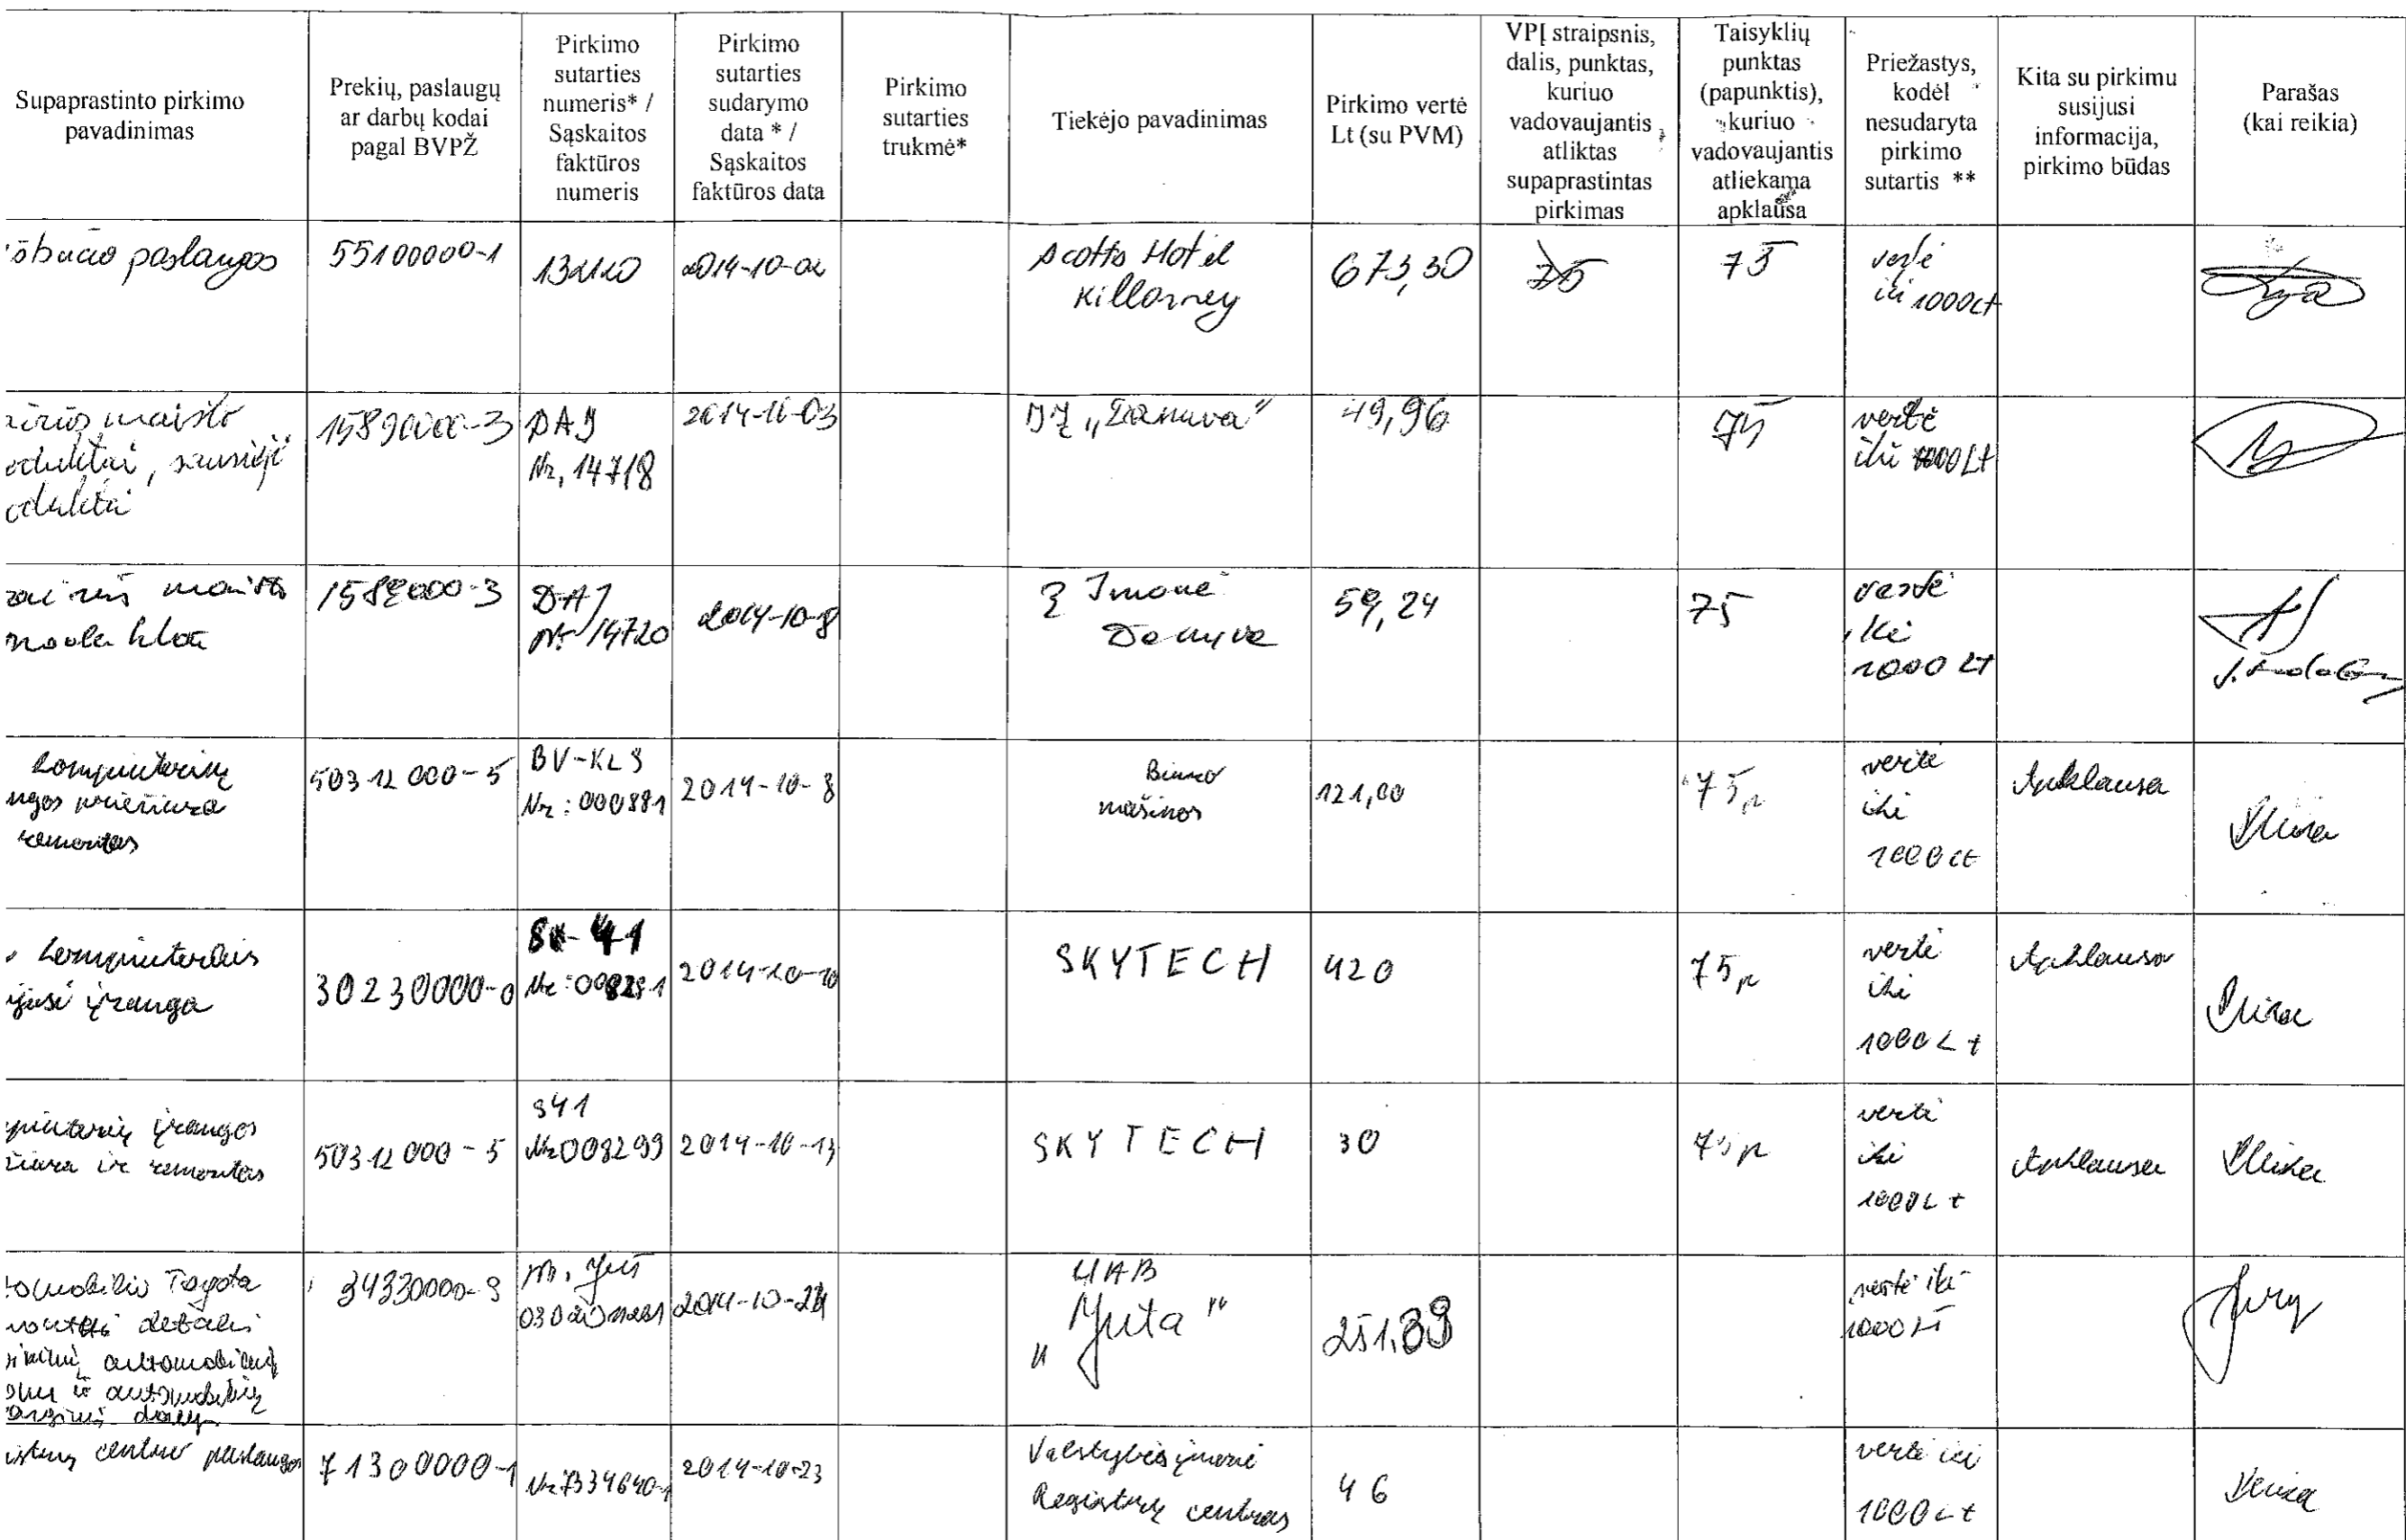 Supaprastinto pirkimo
pavadinimas
Prekių, paslaugų
ar darbų kodai
pagal BVPŽ
Pirkimo
sutarties
numeris* /
Sąskaitos
faktūros
numeris
Pirkimo
sutarties
sudarymo
data * /
Sąskaitos
faktūros data
Pirkimo
sutarties
trukmė*
Tiekėjo pavadinimas
Pirkimo vertė
Lt (su PVM)
VPĮ straipsnis,
dalis, punktas,
kuriuo
vadovaujantis
atliktas
supaprastintas
pirkimas
Taisyklių
punktas
(papunktis),
kuriuo
vadovaujantis
atliekama
apklausa
Priežastys,
kodėl
nesudaryta
pirkimo
sutartis **
Kita su pirkimu
susijusi
informacija,
pirkimo būdas
Parašas
(kai reikia)
paslaugos
55100000-1
2014-10-02
Scotts Hotel
Killarney
673,30
75
75
vertė
iki 1000Lt
maisto
15890000-3
DAJ
Nr. 14718
49,96
75
vertė
iki 1000 Lt
maisto
DAJ
Nr 14720
2014-10-8
Įmonė
59,24
75
vertė
iki
1000 Lt
kompiuterinių
ngos priežiūra
remontas
50312000-5
BV-KLS
Nr: 000881
2014-10-8
Biuro
mašinos
121,00
75p
vertė
iki
1000 Lt
Apklausa
kompiuteriais
ijusi įranga
30230000-0
Nr: 008281
2014-10-10
SKYTECH
420
75p
vertė
iki
1000 Lt
Apklausa
piuterių įrangos
žiūra ir remontas
50312000-5
S41
Nr 008299
2014-10-13
SKYTECH
30
75p
vertė
iki
1000 Lt
Apklausa
tomobilio Toyota
detalės
automobilių
ir automobilių
dalys
34330000-9
UAB
"Juta"
251,89
vertė iki
1000 Lt
istrų centro paslaugos
71300000-1
Nr 7334640-1
2014-10-23
Valstybės įmonė
Registrų centras
46
vertė iki
1000 Lt